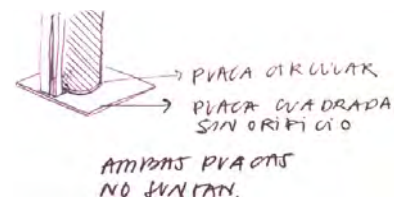 PLACA CIRCULAR
PLACA CUADRADA
SIN ORIFICIO
AMBAS PLACAS
NO JUNTAN.